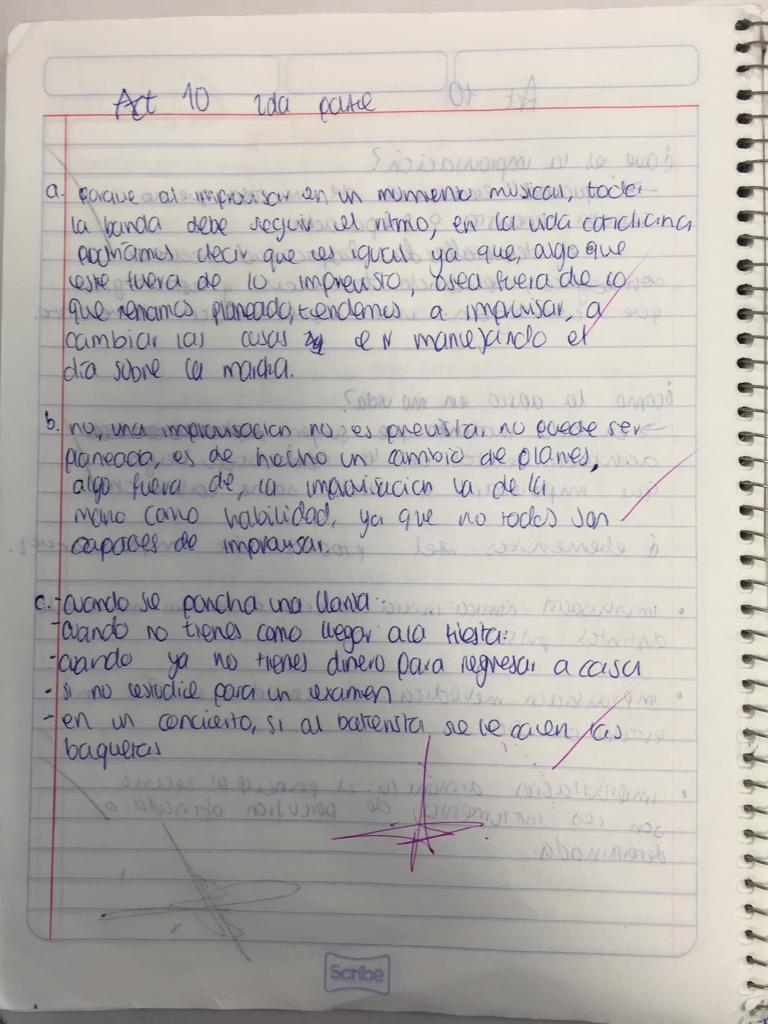 Act 10 2da parte
a. porque al improvisar en un momento musical, toda
la banda debe seguir el ritmo, en la vida cotidiana
podriamos decir que es igual ya que, algo que
este fuera de lo imprevisto, osea fuera de lo
que tenamos planeado, tendemos a improvisar, a
cambiar las cosas e ir manejando el
día sobre la marcha.
b. no, una improvisacion no es prevista, no puede ser
planeada, es de hecho un cambio de planes,
algo fuera de, la improvisacion va de la
mano como habilidad, ya que no todos son
capaces de improvisar.
c. -cuando se poncha una llanta.
-cuando no tienes como llegar a la fiesta.
-cuando ya no tienes dinero para regresar a casa
-si no estudie para un examen
-en un concierto, si al baterista se le caen las
baquetas
Scribe